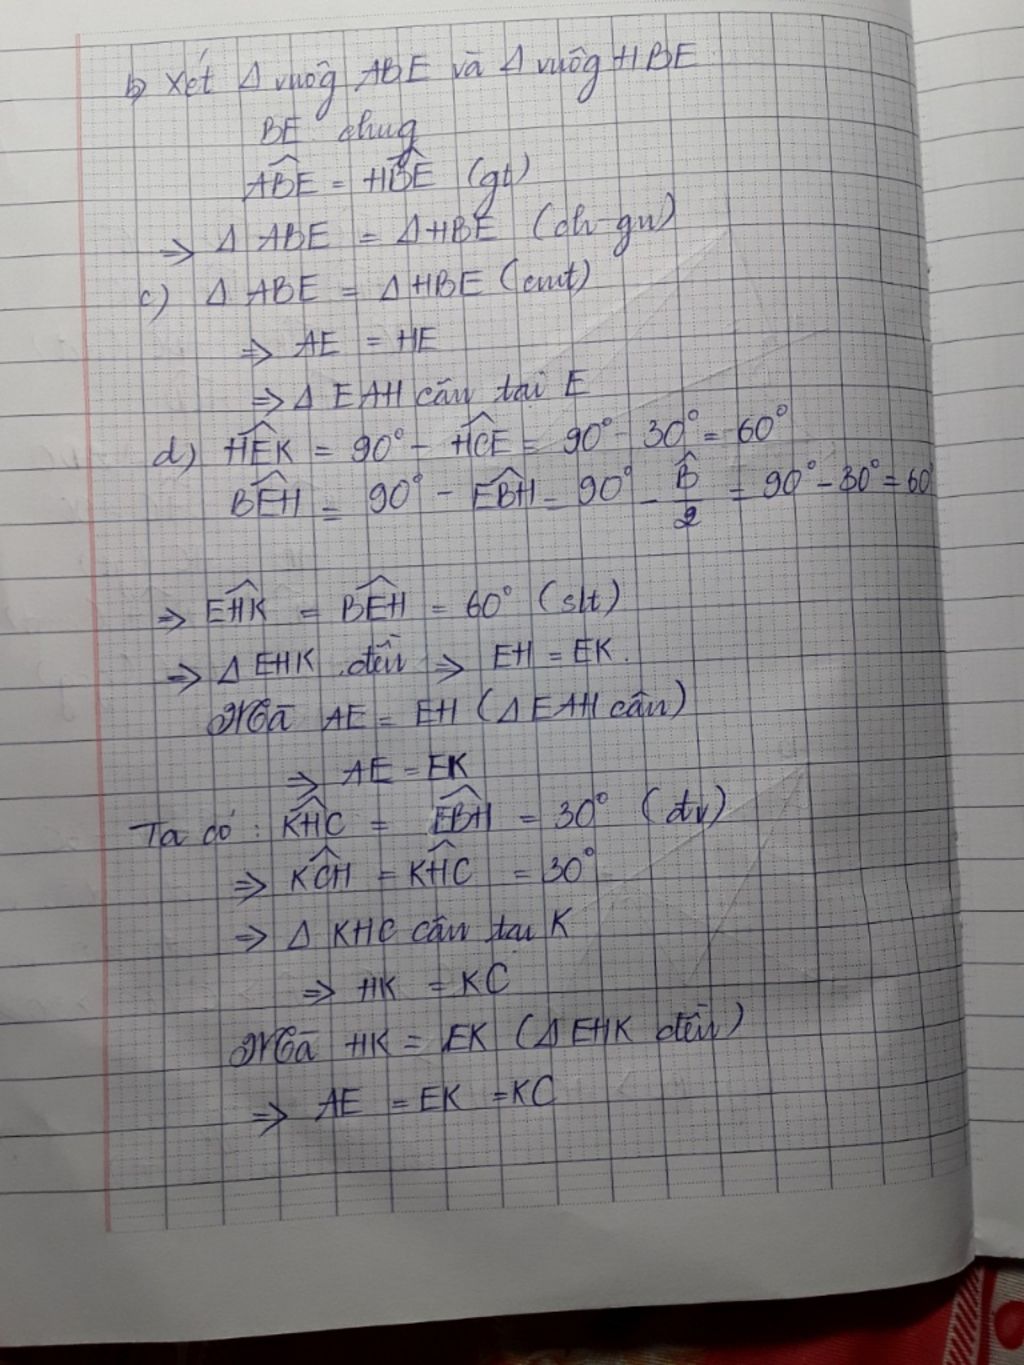 b) Xét Δ vuôg ABE và Δ vuôg HBE
BE chug
ABE^ = HBE^ (gt)
=> Δ ABE = ΔHBE (ch-gn)
c) Δ ABE = ΔHBE (cmt)
=> AE = HE
=> Δ EAH cân tại E
d) HEK^ = 90° - HCE^ = 90° - 30° = 60°
BEH^ = 90° - EBH^ = 90° - B^/2 = 90° - 30° = 60
=> EHK^ = BEH^ = 60° (slt)
=> Δ EHK đều => EH = EK.
Mà AE = EH (Δ EAH cân)
=> AE = EK
Ta có: KHC^ = EBH^ = 30° (đv)
=> KCH^ = KHC^ = 30°
=> Δ KHC cân tại K
=> HK = KC
Mà HK = EK (Δ EHK đều)
=> AE = EK = KC